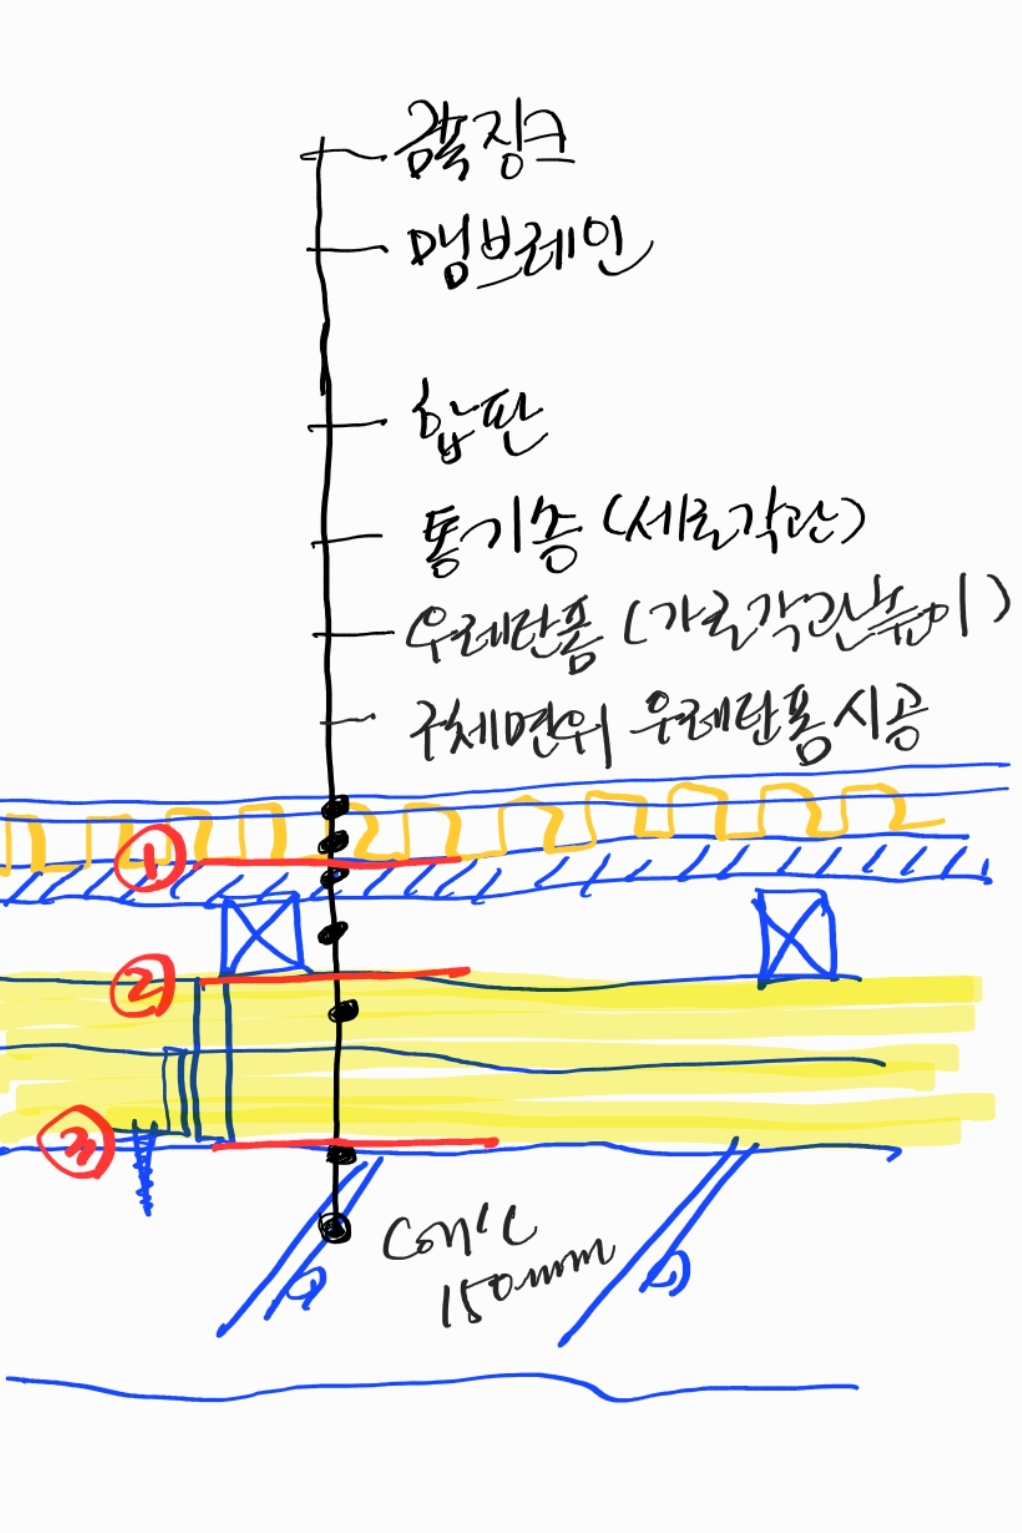 금속징크
멤브레인
합판
통기층 (세로각관)
우레탄폼 (가로각관높이)
구체면위 우레탄폼시공
①
②
③
Con'c
150mm